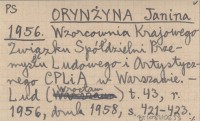 PS
ORYNŻYNA Janina
1956. Wzorcownia Krajowego
Związku Spółdzielni Prze-
mysłu Ludowego i Artystycz-
nego CPLiA w Warszawie. -
Lud (Wrocław) t. 43, r.
1956, druk 1958, s. 421-423.